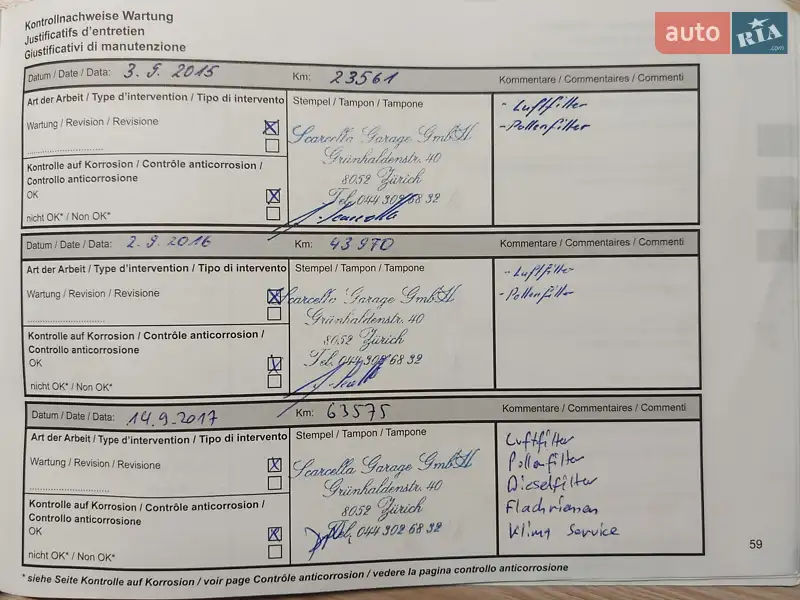 Kontrollnachweise Wartung
Justificatifs d'entretien
Giustificativi di manutenzione
auto RIA .com
Datum / Date / Data: 3. 9. 2015 Km: 23561 Kommentare / Commentaires / Commenti
Art der Arbeit / Type d'intervention / Tipo di intervento
Wartung / Revision / Revisione
Kontrolle auf Korrosion / Contrôle anticorrosion /
Controllo anticorrosione
OK
nicht OK* / Non OK*
Stempel / Tampon / Tampone
Scarcella Garage GmbH
Grünhaldenstr. 40
8052 Zürich
Tel. 044 302 68 32
- Luftfilter
- Pollenfilter
Datum / Date / Data: 2. 9. 2016 Km: 43970 Kommentare / Commentaires / Commenti
Art der Arbeit / Type d'intervention / Tipo di intervento
Wartung / Revision / Revisione
Kontrolle auf Korrosion / Contrôle anticorrosion /
Controllo anticorrosione
OK
nicht OK* / Non OK*
Stempel / Tampon / Tampone
Scarcella Garage GmbH
Grünhaldenstr. 40
8052 Zürich
Tel. 044 302 68 32
- Luftfilter
- Pollenfilter
Datum / Date / Data: 14.9.2017 Km: 63575 Kommentare / Commentaires / Commenti
Art der Arbeit / Type d'intervention / Tipo di intervento
Wartung / Revision / Revisione
Kontrolle auf Korrosion / Contrôle anticorrosion /
Controllo anticorrosione
OK
nicht OK* / Non OK*
Stempel / Tampon / Tampone
Scarcella Garage GmbH
Grünhaldenstr. 40
8052 Zürich
Tel. 044 302 68 32
Luftfilter
Pollenfilter
Dieselfilter
Flachriemen
Klima Service
59
* siehe Seite Kontrolle auf Korrosion / voir page Contrôle anticorrosion / vedere la pagina controllo anticorrosione